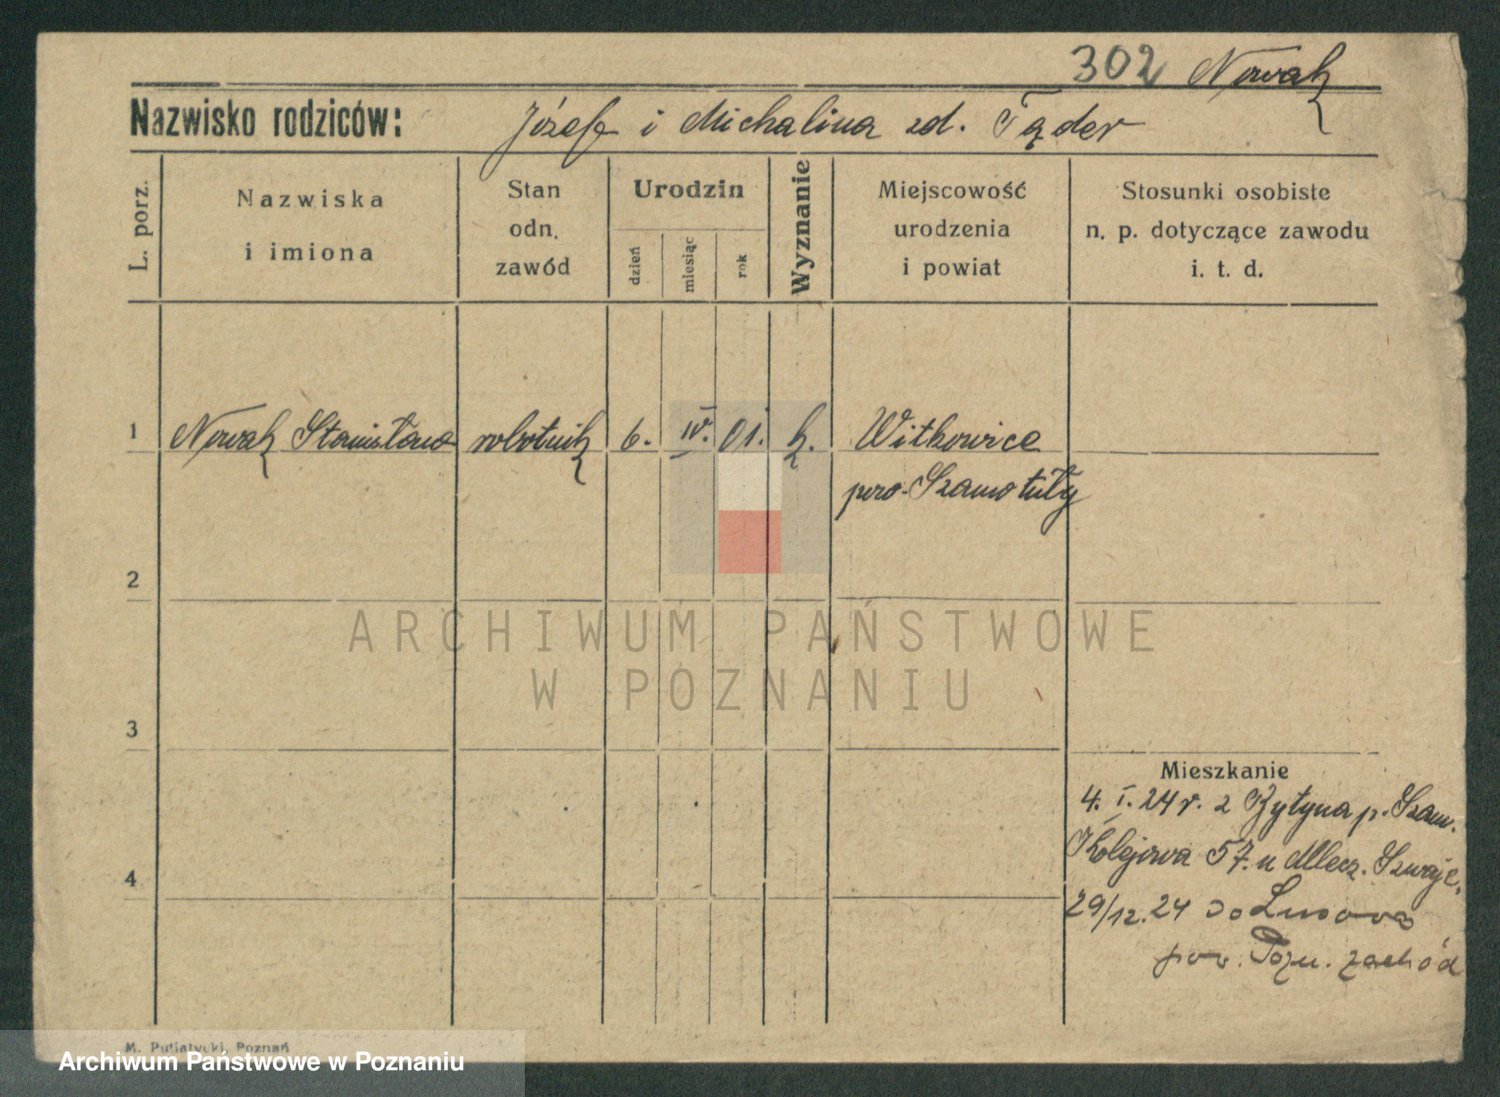 302 Nowak
Nazwisko rodziców: Józef i Michalina zd. Tąder
L. porz.
Nazwiska
i imiona
Stan
odn.
zawód
Urodzin
dzień
miesiąc
rok
Wyznanie
Miejscowość
urodzenia
i powiat
Stosunki osobiste
n. p. dotyczące zawodu
i. t. d.
1 Nowak Stanisław robotnik 6. IV. 01. k. Witkowice
pow. Szamotuły
2
3
4
Mieszkanie
4. I. 24 r. z Bytyna p. Szam.
Kolejowa 57. u Mlecz. Szwajc.
29/12. 24 do Lusowa
pow. Pozn. zachód
ARCHIWUM PAŃSTWOWE
W POZNANIU
M. Putiatycki, Poznań
Archiwum Państwowe w Poznaniu